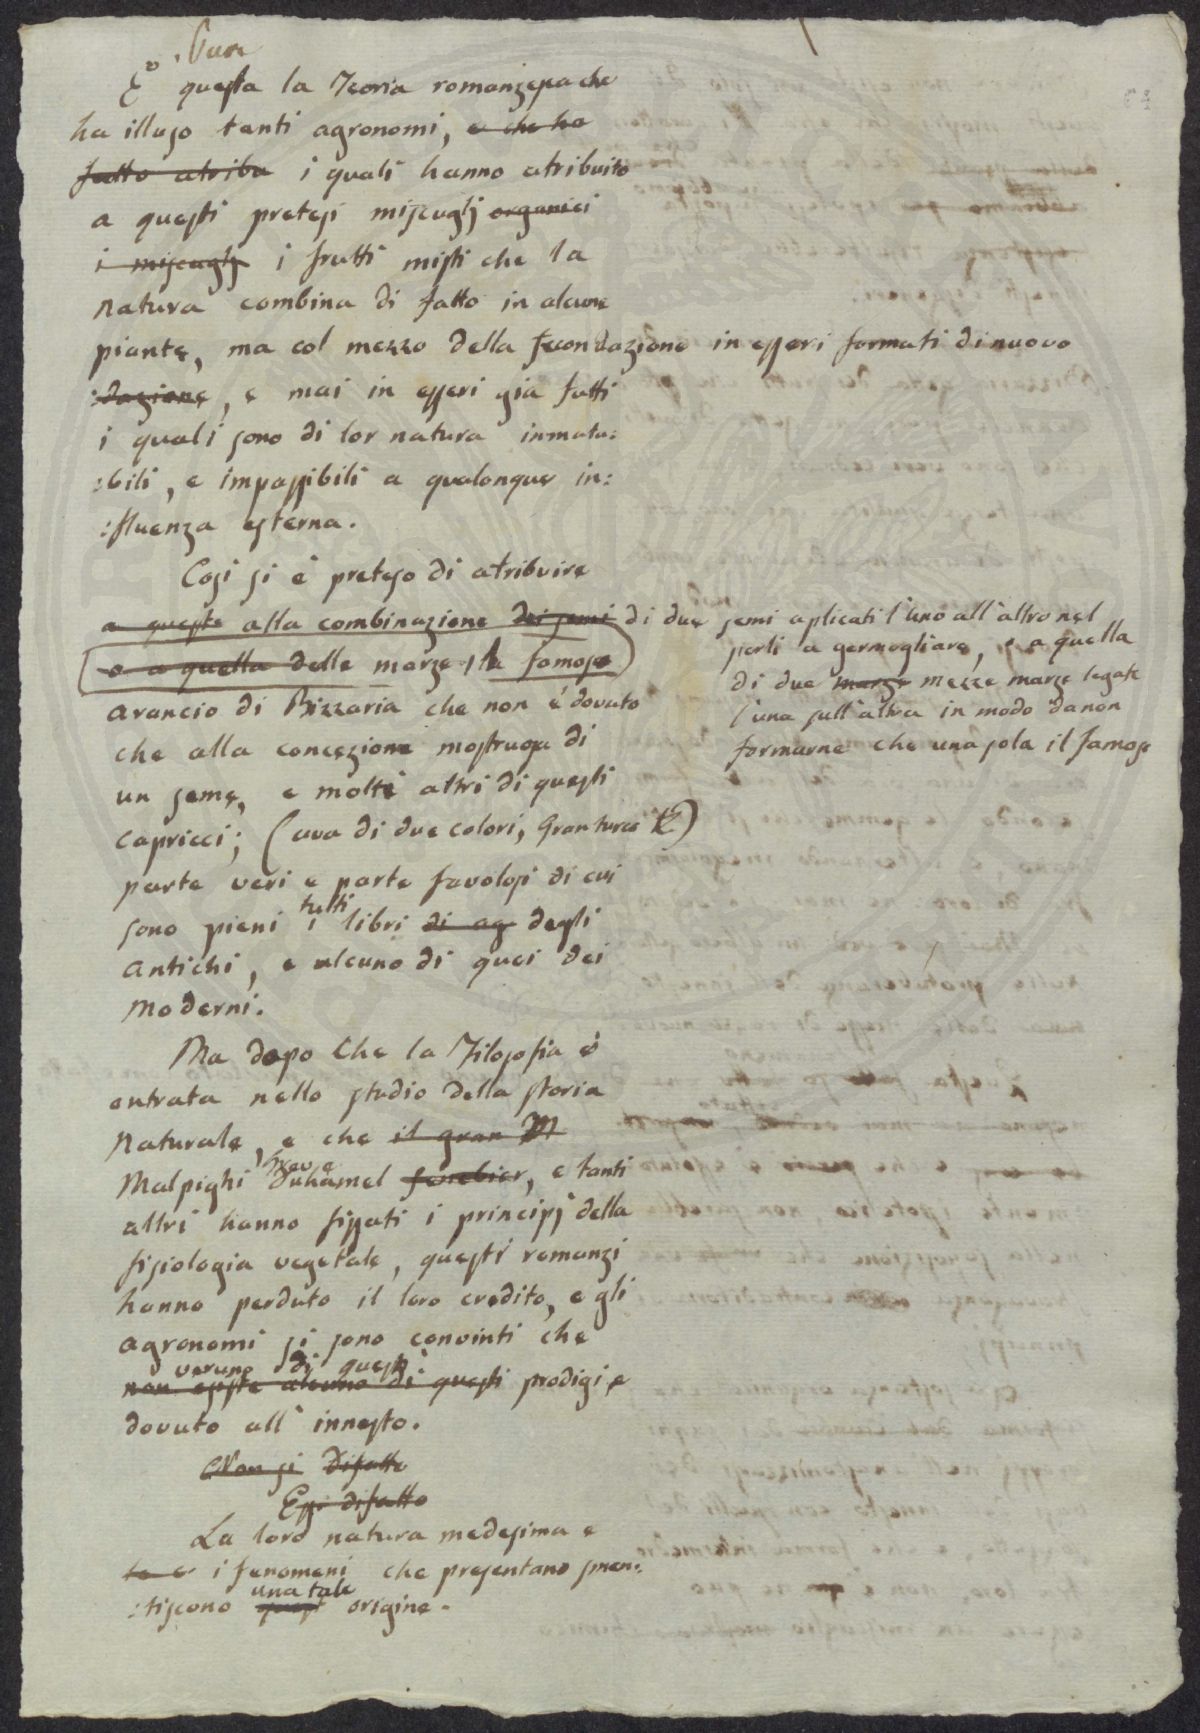 Pure
E' questa la Teoria romanzesca che
ha illuso tanti agronomi, e che ha
fatto atribu i quali hanno atribuito
a questi pretesi miscuglj organici
i miscuglj i frutti misti che la
natura combina di fatto in alcune
piante, ma col mezzo della fecondazione in esseri formati di nuovo
:dazione, e mai in esseri già fatti
i quali sono di lor natura inmuta:
:bili, e impassibili a qualonque in:
:fluenza esterna.
Così si è preteso di atribuire
a queste alla combinazione dei semi di due semi aplicati l'uno all'altro nel
porli a germogliare, e a quella
di due marze mezze marze legate
l'una sull'altra in modo da non
formarne che una sola il famoso
o a quella delle marze, la famosa
arancio di Bizzaria che non è dovuto
che alla concezione mostruosa di
un seme, e molti altri di questi
capricci; (uva di due colori, Gran turco &)
parte veri e parte favolosi di cui
tutti
sono pieni i libri di ag degli
antichi, e alcuno di quei dei
moderni.
Ma dopo che la Filosofia è
entrata nello studio della storia
Naturale, e che il gran M
Malpighi Duhamel senebier, e tanti
altri hanno fissati i principj della
fisiologia vegetale, questi romanzi
hanno perduto il loro credito, e gli
agronomi si sono convinti che
veruno di questi
non esiste alcuno di questi prodigi è
dovuto all'innesto.
Non si difatto
Essi difatto
La loro natura medesima e
i fenomeni che presentano smen:
una tale
:tiscono origine.